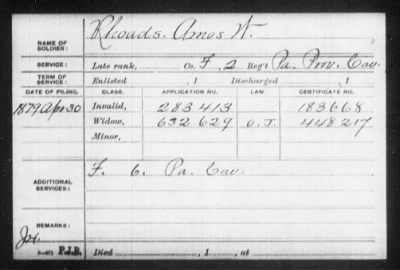 NAME OF SOLDIER: Rhoads, Amos W.
SERVICE: Late rank, Co. F, 2 Reg't Pa. Prov. Cav.
TERM OF SERVICE: Enlisted , 1 Discharged , 1
DATE OF FILING. CLASS. APPLICATION NO. LAW. CERTIFICATE NO.
1879 Apr 30 Invalid, 283413 183668
Widow, 632629 O.J. 448217
Minor,
ADDITIONAL SERVICES: F. 6. Pa. Cav.
REMARKS:
P.I.B. Died , 1 , at